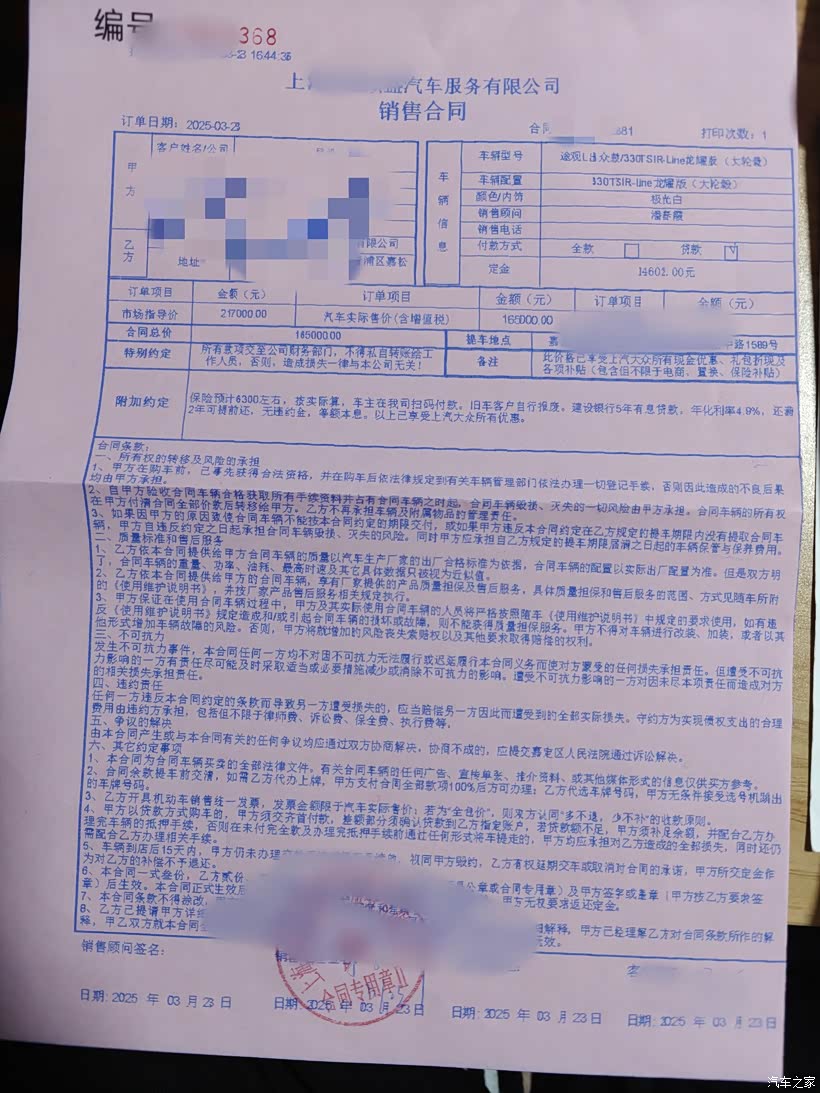 编号
368
16:44:36
汽车服务有限公司
销售合同
订单日期: 2025-03-23
合同
881
打印次数: 1
甲方
客户姓名/公司
乙方
有限公司
地址
浦区嘉松
车辆信息
车辆型号
途观L出众款/330TSIR-Line龙耀版（大轮毂）
车辆配置
330TSIR-line龙耀版（大轮毂）
颜色/内饰
极光白
销售顾问
销售电话
付款方式
全款
贷款
定金
14602.00元
订单项目 金额（元） 订单项目 金额（元） 订单项目 金额（元）
市场指导价 217000.00 汽车实际售价(含增值税) 165000.00
合同总价 165000.00 提车地点 嘉
路1589号
特别约定
所有款项交至公司财务部门，不得私自转账给工
作人员，否则，造成损失一律与本公司无关！
备注
此价格已享受上汽大众所有现金优惠、礼包折现及
各项补贴（包含但不限于电商、置换、保险补贴）
附加约定
保险预计6300左右，按实际算，车主在我司扫码付款。旧车客户自行报废。建设银行5年有息贷款，年化利率4.9%，还满
2年可提前还，无违约金，等额本息。以上已享受上汽大众所有优惠。
合同条款:
一、所有权的转移及风险的承担
1、甲方在购车前，已事先获得合法资格，并在购车后依法律规定到有关车辆管理部门依法办理一切登记手续，否则因此造成的不良后果
均由甲方承担。
2、自甲方验收合同车辆合格获取所有手续资料并占有合同车辆之时起，合同车辆毁损、灭失的一切风险由甲方承担。合同车辆的所有权
在甲方付清合同全部价款后转移给甲方。乙方不再承担车辆及附属物品的管理责任。
3、如果因甲方的原因致使合同车辆不能按本合同约定的期限交付，或如果甲方违反本合同约定在乙方规定的提车期限内没有提取合同车
辆，甲方自违反约定之日起承担合同车辆毁损、灭失的风险。同时甲方应承担自乙方规定的提车期限届满之日起的车辆保管与保养费用。
二、质量标准和售后服务
1、乙方依本合同提供给甲方合同车辆的质量以汽车生产厂家的出厂合格标准为依据，合同车辆的配置以实际出厂配置为准。但是双方明
了，合同车辆的重量、功率、油耗、最高时速及其它具体数据只被视为近似值。
2、乙方依本合同提供给甲方的合同车辆，享有厂家提供的产品质量担保及售后服务，具体质量担保和售后服务的范围、方式见随车所附
的《使用维护说明书》，并按厂家产品售后服务相关规定执行。
3、甲方保证在使用合同车辆过程中，甲方及其实际使用合同车辆的人员将严格按照随车《使用维护说明书》中规定的要求使用，如有违
反《使用维护说明书》规定造成和/或引起合同车辆的损坏或故障，则不能获得质量担保服务。甲方不得对车辆进行改装、加装，或者以其
他形式增加车辆故障的风险。否则，甲方将就增加的风险丧失索赔权以及其他要求取得赔偿的权利。
三、不可抗力
发生不可抗力事件，本合同任何一方均不对因不可抗力无法履行或迟延履行本合同义务而使对方蒙受的任何损失承担责任。但遭受不可抗
力影响的一方有责任尽可能及时采取适当或必要措施减少或消除不可抗力的影响。遭受不可抗力影响的一方对因未尽本项责任而造成对方
的相关损失承担责任。
四、违约责任
任何一方违反本合同约定的条款而导致另一方遭受损失的，应当赔偿另一方因此而遭受到的全部实际损失。守约方为实现债权支出的合理
费用由违约方承担，包括但不限于律师费、诉讼费、保全费、执行费等。
五、争议的解决
由本合同产生或与本合同有关的任何争议均应通过双方协商解决，协商不成的，应提交嘉定区人民法院通过诉讼解决。
六、其它约定事项
1、本合同为合同车辆买卖的全部法律文件。有关合同车辆的任何广告、宣传单张、推介资料、或其他媒体形式的信息仅供买方参考。
2、合同余款提车前交清，如需乙方代办上牌，甲方支付合同全部款项100%后方可办理；乙方代选车牌号码，甲方无条件接受选号机跳出
的车牌号码。
3、乙方开具机动车销售统一发票，发票金额限于汽车实际售价；若为“全包价”，则买方认同“多不退，少不补”的收款原则。
4、甲方以贷款方式购车的，甲方须交齐首付款，差额部分须确认贷款到乙方指定账户，若贷款额不足，甲方须补足余额，并配合乙方办
理完车辆的抵押手续，否则在未付完全款及办理完抵押手续前通过任何形式将车提走的，甲方均应承担对乙方造成的全部损失，同时还仍
需配合乙方办理相关手续。
5、车辆到店后15天内，甲方仍未办理
视同甲方毁约，乙方有权延期交车或取消对合同的承诺，甲方所交定金作
为对乙方的补偿不予退还。
6、本合同一式叁份，乙方贰份，
公章或合同专用章）及甲方签字或盖章（甲方按乙方要求签
章）后生效。本合同正式生效后
甲方无权要求返还定金。
7、本合同条款不得涂改，
无效。
8、乙方已提请甲方详细
解释，甲方已经理解乙方对合同条款所作的解
释，甲乙双方就本合同
销售顾问签名:
销售
客
合同专用章
日期: 2025 年 03 月 23 日
日期: 2025 年 03 月 23 日
日期: 2025 年 03 月 23 日
日期: 2025 年 03 月 23 日
汽车之家